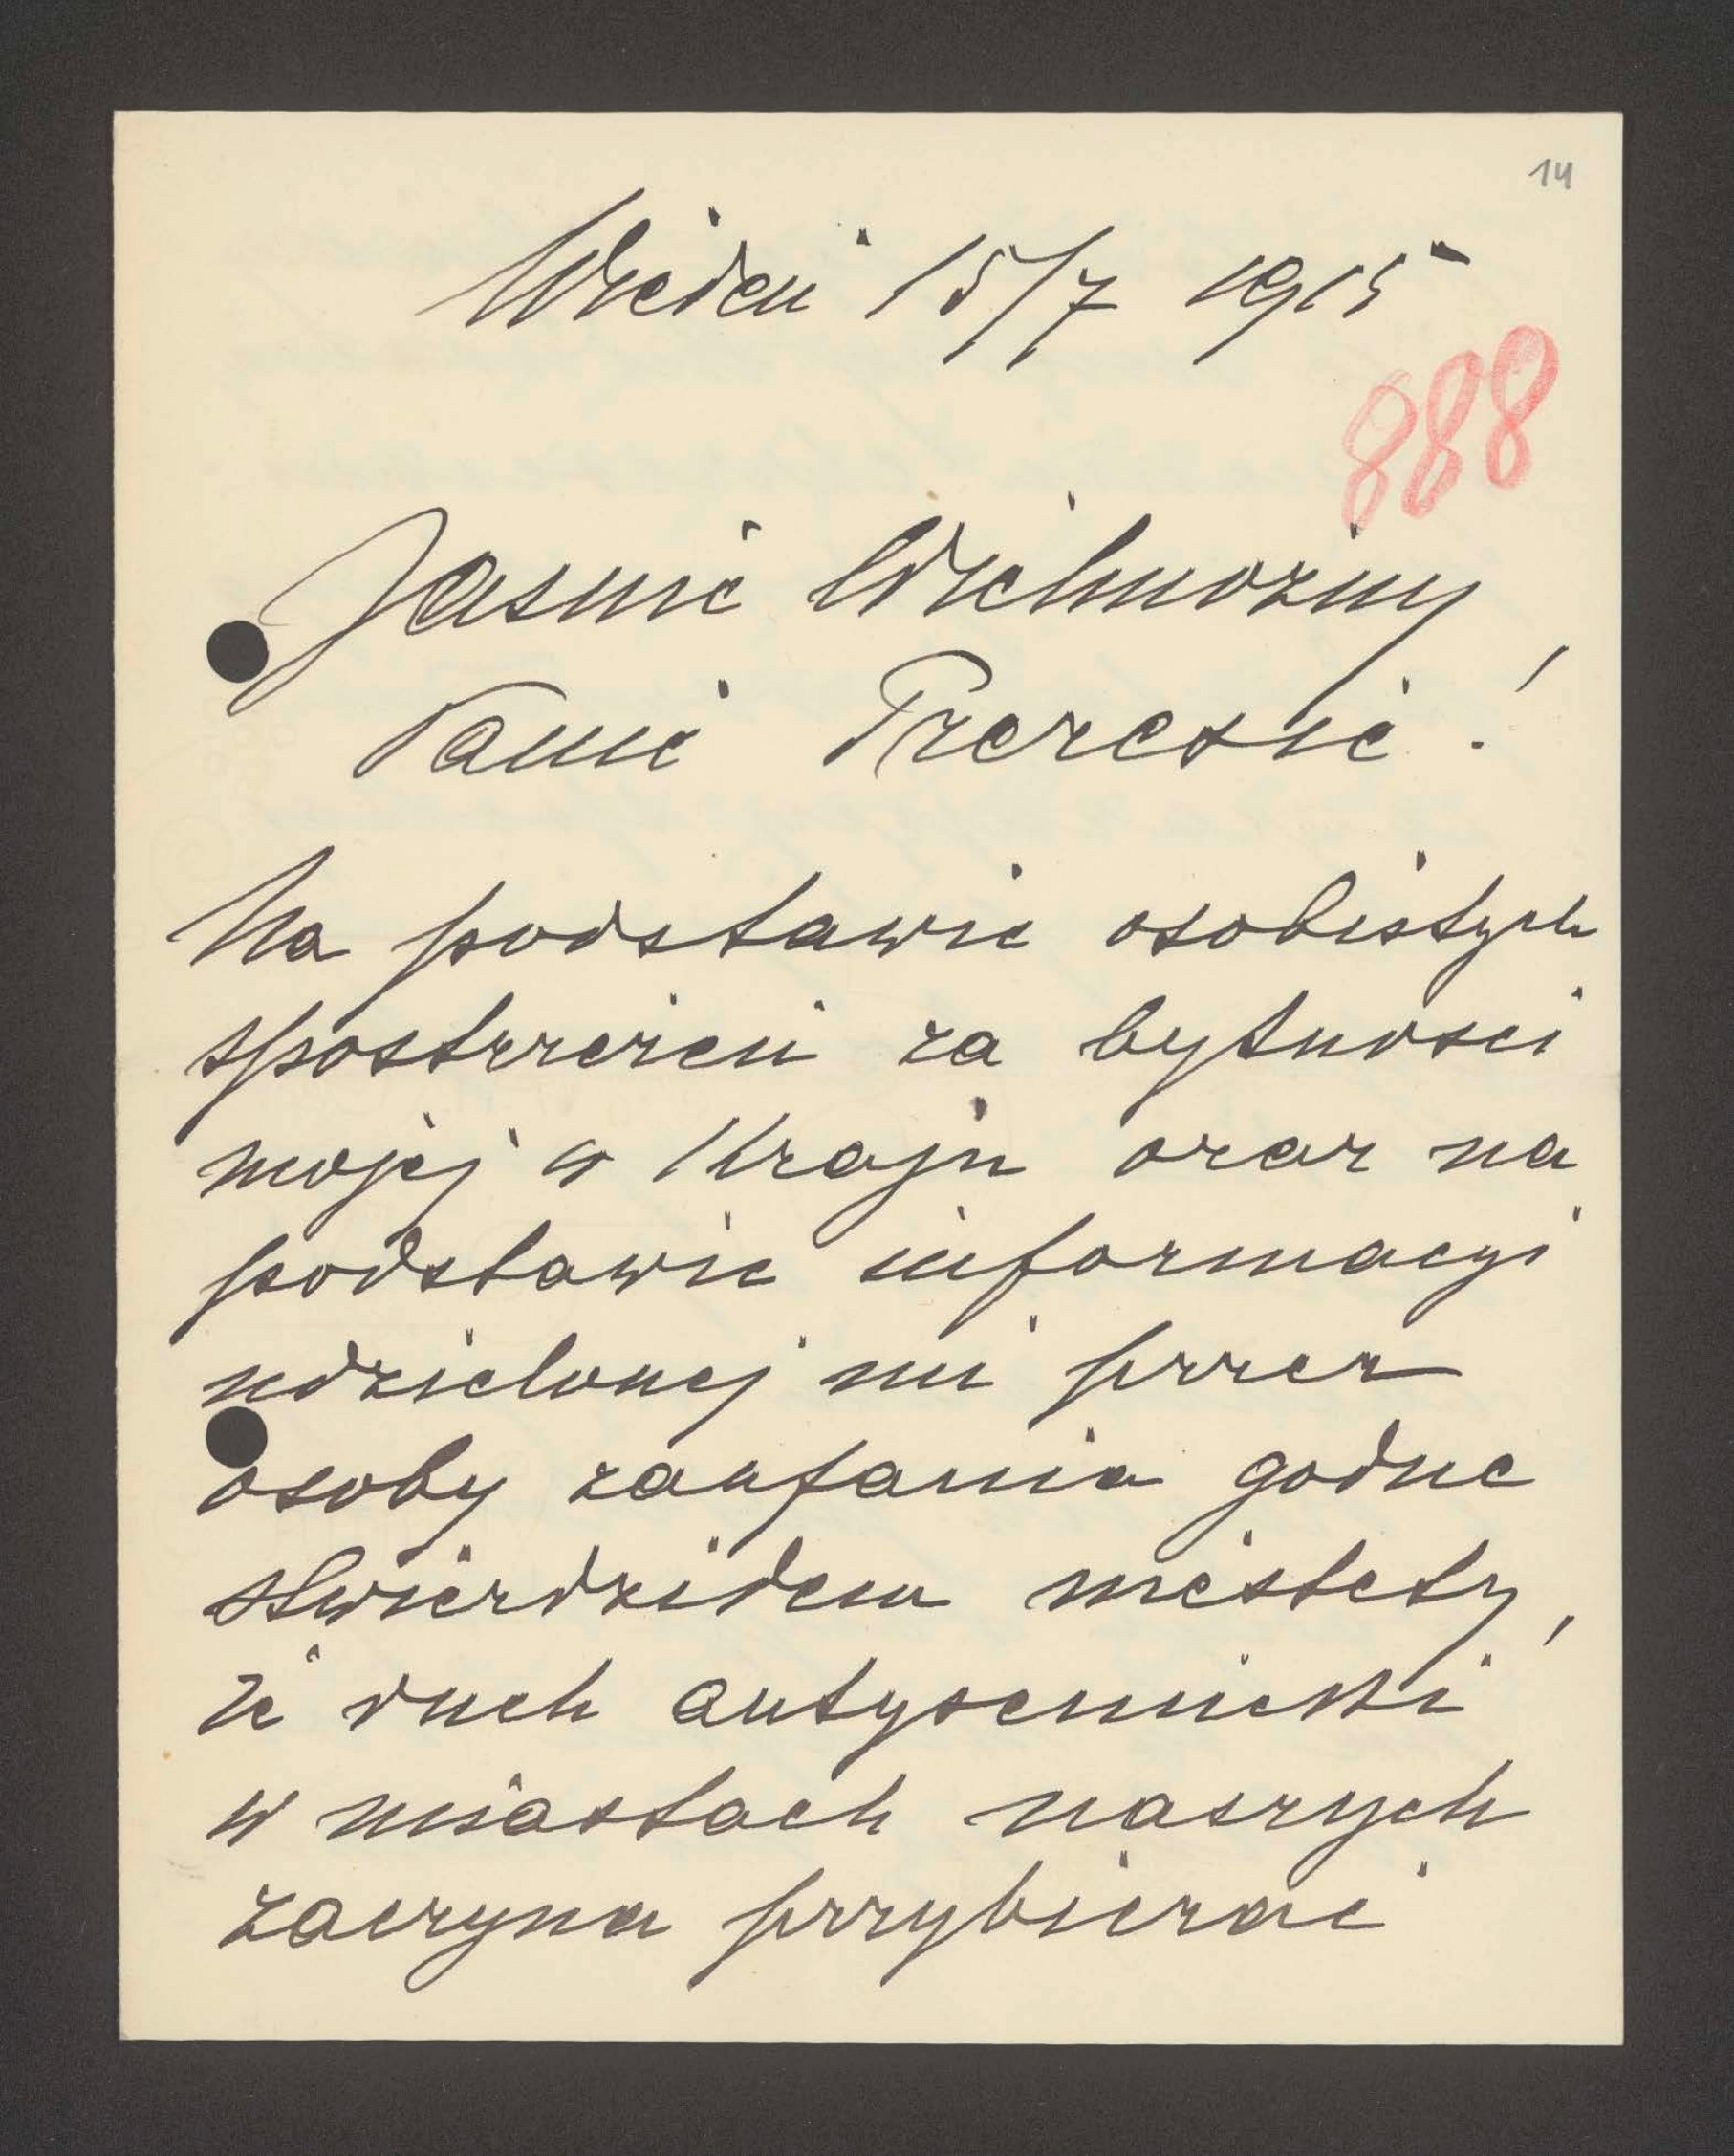 14
Wiedeń 15/7 1915
888
Jaśnie Wielmożny
Panie Prezesie!
Na podstawie osobistych
spostrzeżeń za bytności
mojej w Kraju oraz na
podstawie informacyi
udzielonej mi przez
osoby zaufania godne
stwierdziłem niestety,
że duch antysemicki
w miastach naszych
zaczyna przybierać